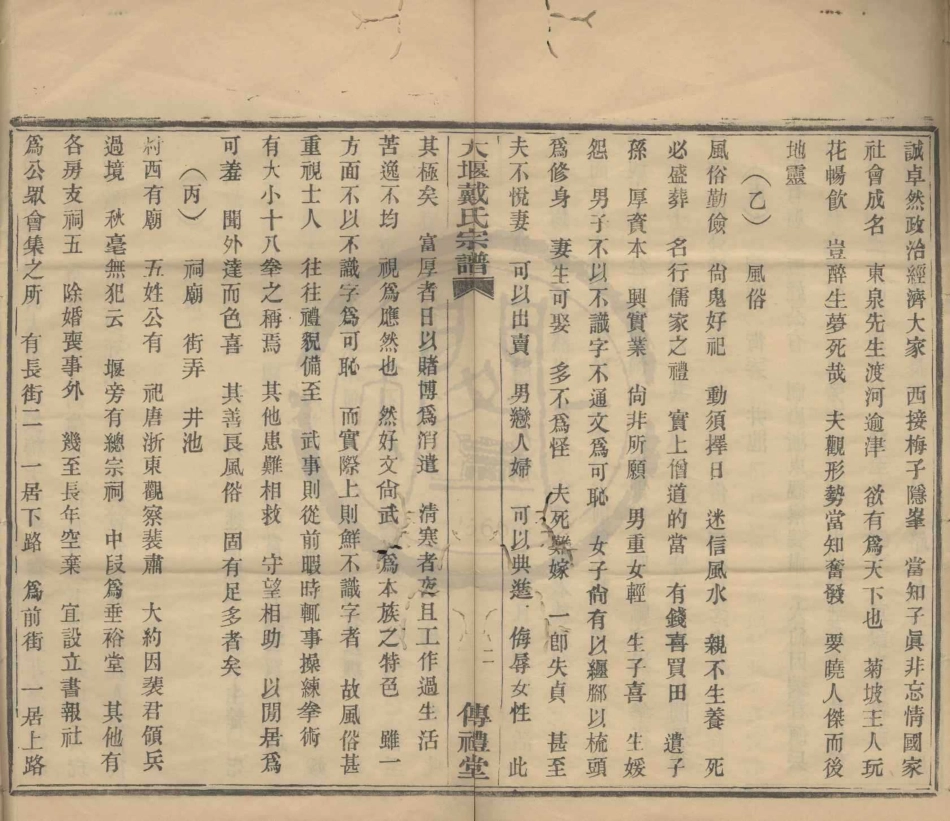 誠卓然政治經濟大家　西接梅子隱峯　當知子眞非忘情國家
社會成名　東泉先生渡河逾津　欲有爲天下也　菊坡主人玩
花暢飮　豈醉生夢死哉　夫觀形勢當知奮發　要曉人傑而後
地靈
（乙）　風俗
風俗勤儉　尙鬼好祀　動須擇日　迷信風水　親不生養　死
必盛葬　名行儒家之禮　實上僧道的當　有錢喜買田　遺子
孫　厚資本　興實業　尙非所願　男重女輕　生子喜　生媛
怨　男子不以不識字不通文爲可恥　女子尙有以纏腳以梳頭
爲修身　妻生可娶　多不爲怪　夫死難嫁　一卽失貞　甚至
夫不悅妻　可以出賣　男戀人婦　可以典進　侮辱女性　此
大堰戴氏宗譜　二　傳禮堂
其極矣　富厚者日以賭博爲消遣　清寒者夜且工作過生活
苦逸不均　視爲應然也　然好文尙武　爲本族之特色　雖一
方面不以不識字爲可恥　而實際上則鮮不識字者　故風俗甚
重視士人　往往禮貌備至　武事則從前暇時輒事操練拳術
有大小十八拳之稱焉　其他患難相救　守望相助　以閒居爲
可羞　聞外達而色喜　其善良風俗　固有足多者矣
（丙）　祠廟　街弄　井池
村西有廟　五姓公有　祀唐浙東觀察裴肅　大約因裴君領兵
過境　秋毫無犯云　堰旁有總宗祠　中段爲垂裕堂　其他有
各房支祠五　除婚喪事外　幾至長年空棄　宜設立書報社
爲公眾會集之所　有長街二　一居下路　爲前街　一居上路